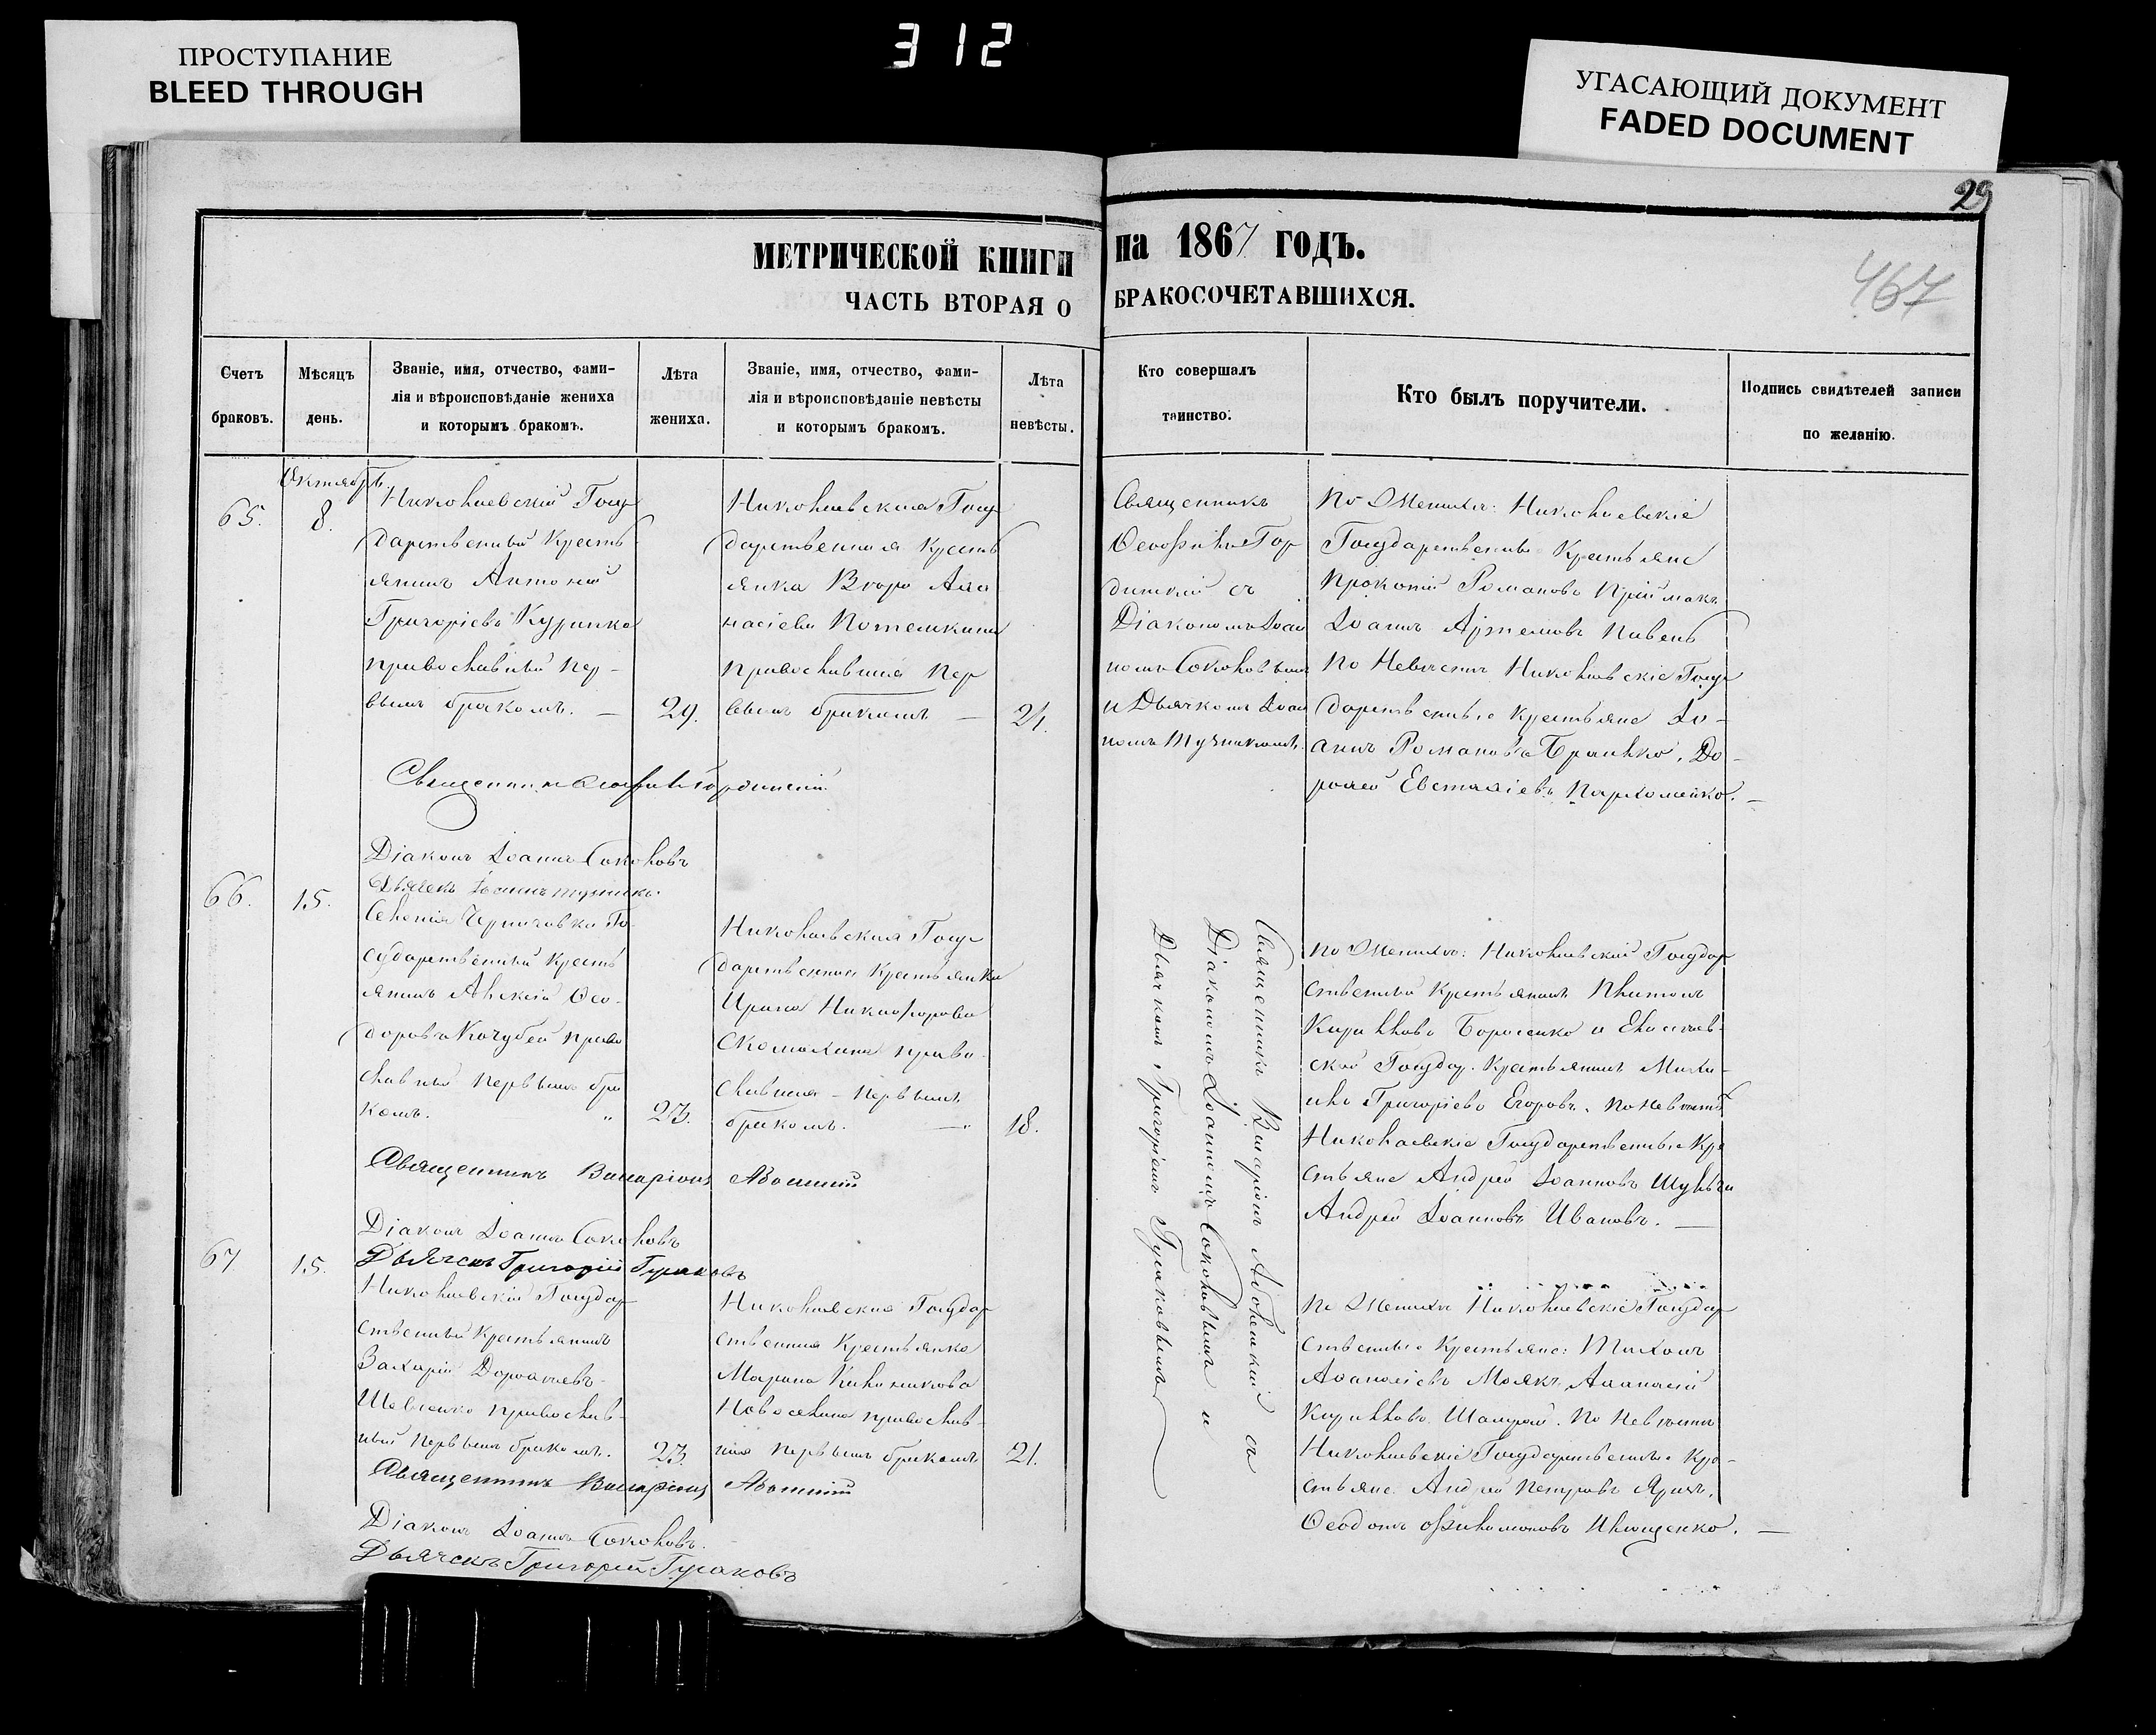 ПРОСТУПАНИЕ
BLEED THROUGH
312
УГАСАЮЩИЙ ДОКУМЕНТ
FADED DOCUMENT
29
467
МЕТРИЧЕСКОЙ КНИГИ на 1867 ГОДЪ.
ЧАСТЬ ВТОРАЯ О БРАКОСОЧЕТАВШИХСЯ.
Счетъ браковъ.
Мѣсяцъ день.
Званіе, имя, отчество, фами-
лія и вѣроисповѣданіе жениха
и которымъ бракомъ.
Лѣта жениха.
Званіе, имя, отчество, фами-
лія и вѣроисповѣданіе невѣсты
и которымъ бракомъ.
Лѣта невѣсты.
Кто совершалъ
таинство.
Кто былъ поручители.
Подпись свидѣтелей записи
по желанію.
65.
Октябрь
8.
Николаевскій Госу
дарственный Кресть
янинъ Антоній
Григоріевъ Куринко
православный пер-
вымъ бракомъ. —
29.
Николаевская Госу
дарственная Кресть
янка Аѳа
насіева Потемкина
православная пер
вымъ бракомъ —
21.
Священникъ
Ѳеофилъ Гор
динскій съ
Діакономъ Іоан
номъ Соколовымъ
и Дьячкомъ Іоан
номъ
По Женихѣ: Николаевскіе
Государственные Крестьяне
Прокопій Романовъ Приймакъ
Іоаннъ Артемовъ Пивень
По Невѣстѣ Николаевскіе Госу
дарственные Крестьяне Іо-
аннъ Романовъ До-
роѳей Евстаѳіевъ Пархоменко. —
Священникъ Ѳеофилъ Гординскій
Діаконъ Іоаннъ Соколовъ
Дьячекъ Іоаннъ
66.
15.
Селенія Черниговки Го
сударственный Кресть
янинъ Алексій Ѳео-
доровъ Кочубей право
славный первымъ бра
комъ.
23.
Николаевская Госу
дарственная Крестьянка
Ирина Никифорова
Скомохина право-
славная — первымъ
бракомъ. —
18.
Священникъ Виссаріонъ съ
Діакономъ Іоанномъ Соколовымъ и
Дьячкомъ Григоріемъ Гусаковымъ
По Женихѣ: Николаевскій Государ
ственный Крестьянинъ Платонъ
Кирилловъ Борисенко и
ской Государ. Крестьянинъ Миха-
илъ Григоріевъ Егоровъ. По Невѣстѣ
Николаевскіе Государственные Кре
стьяне Андрей Іоанновъ
Андрей Іоанновъ Ивановъ. —
Священникъ Виссаріонъ
Діаконъ Іоаннъ Соколовъ
Дьячекъ Григорій Гусаковъ
67
15.
Николаевскій Государ
ственный Крестьянинъ
Захарій Дороѳеевъ
Шевченко православ-
ный первымъ бракомъ.
23.
Николаевская Государ
ственная Крестьянка
Марина
Новоселина православ-
ная первымъ бракомъ
21.
По Женихѣ Николаевскіе Государ
ственные Крестьяне: Тихонъ
Аѳанасіевъ Аѳанасій
Кирилловъ По Невѣстѣ
Николаевскіе Государственные Кре-
стьяне Андрей Петровъ
Ѳеодотъ Филимоновъ Ильященко. —
Священникъ Виссаріонъ
Діаконъ Іоаннъ Соколовъ.
Дьячекъ Григорій Гусаковъ